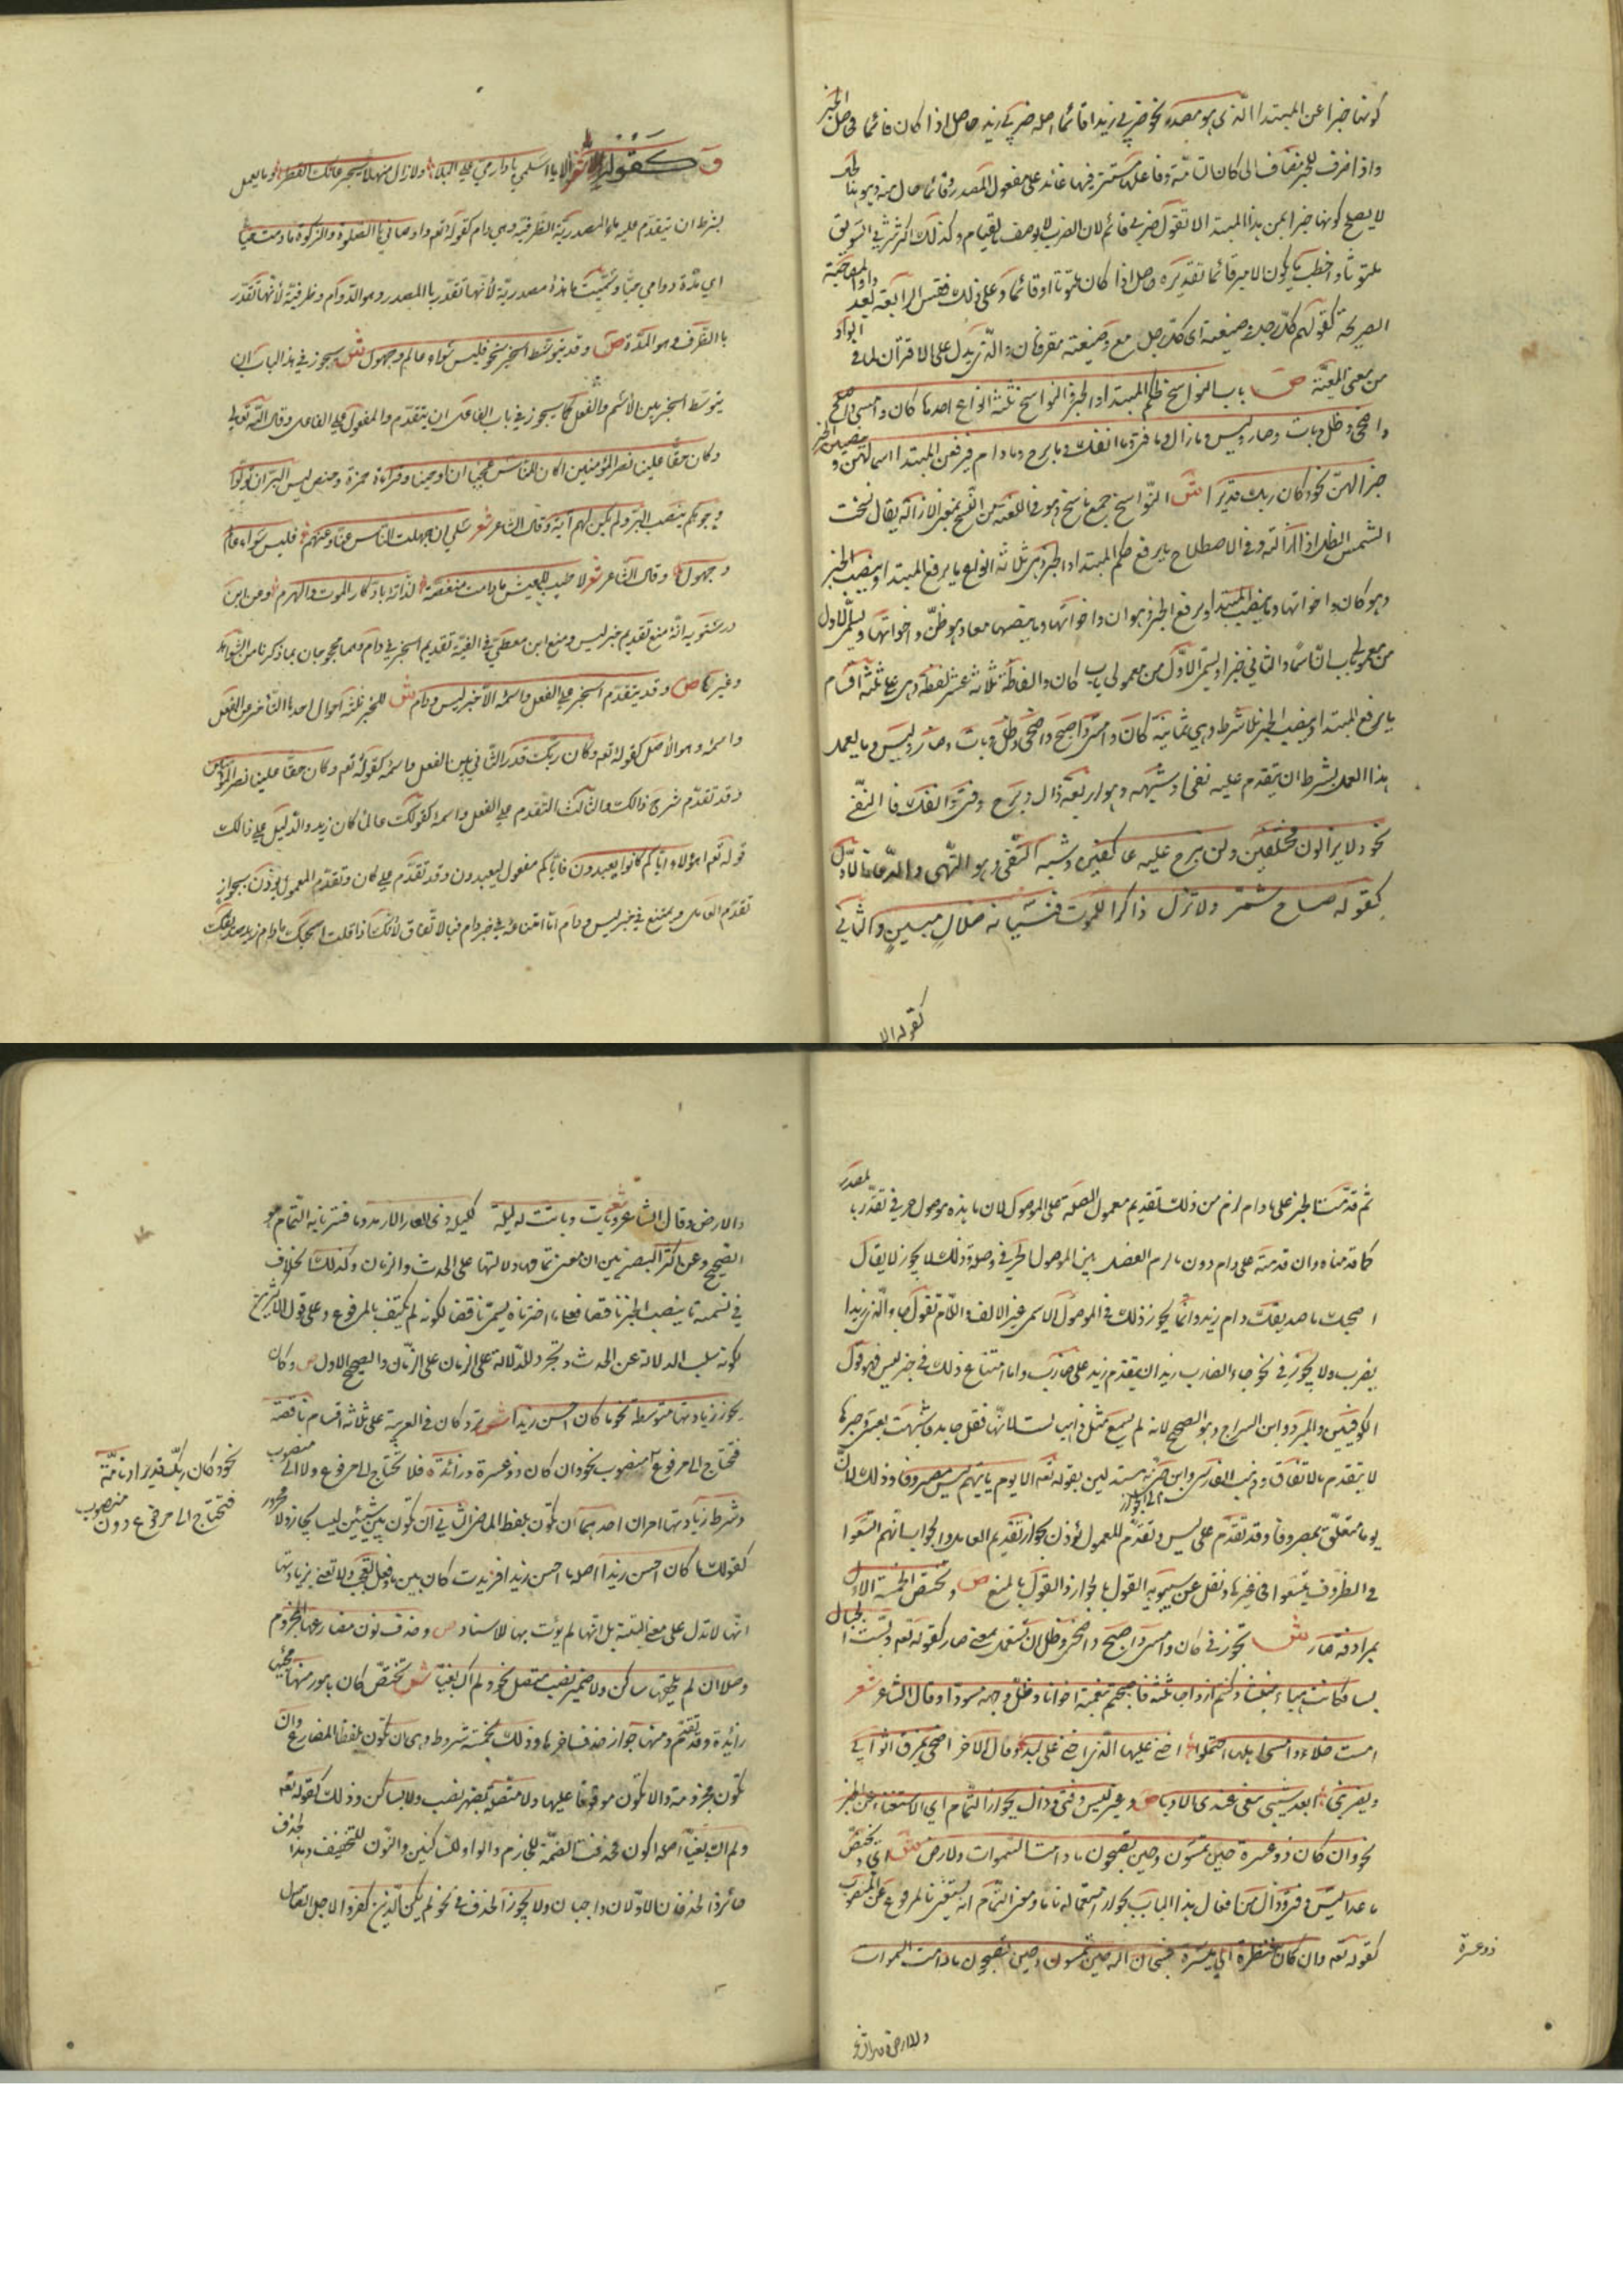 كونها خبرا عن المبتدا الذى هو مصدر نحو ضربى زيدا قائما اصله ضربى زيد حاصل اذا كان قائما فحاصل الخبر
واذا ظرف للخبر مضاف الى كان التامة وفاعلها مستتر فيها عائد على مفعول المصدر وقائما حال منه وهو بنا الحال
لا يصلح كونها خبرا عن هذا المبتدا لا تقول ضربى قائم لان الضرب لا يوصف بالقيام وكذلك اكثر شربى السويق
ملتوتا واخطب ما يكون الامير قائما تقديره حاصل اذا كان ملتوتا او قائما وعلى ذلك فقس الرابعة بعد واو المصاحبة
الصريحة كقولهم كل رجل وضيعته اى كل رجل مع وضيعته مقرونان والذى يدل على الاقتران لما فى الواو
من معنى المعية ص باب النواسخ لحكم المبتدا والخبر النواسخ ثلثة انواع احدها كان وامسى واصبح
واضحى وظل وبات وصار وليس وما زال وما فتئ وما انفك وما برح وما دام فيرفعن المبتدا اسما لهن وينصبن الخبر
خبرا لهن نحو وكان ربك قديرا ش النواسخ جمع ناسخ وهو فى اللغة من النسخ بمعنى الازالة يقال نسخت
الشمس الظل اذا ازالته وفى الاصطلاح ما يرفع حكم المبتدا والخبر وهى ثلاثة انواع ما يرفع المبتدا وينصب الخبر
وهو كان واخواتها وما ينصب المبتدا ويرفع الخبر وهو ان واخواتها وما ينصبهما معا وهو ظن واخواتها ويسمى الاول
من معمولى باب ان اسما والثانى خبرا ويسمى الاول من معمولى باب كان والفاظه ثلاثة عشر لفظة وهى على ثلثة اقسام
ما يرفع المبتدا وينصب الخبر بلا شرط وهى ثمانية كان وامسى واصبح واضحى وظل وبات وصار وليس وما يعمل
هذا العمل بشرط ان يتقدم عليه نفى او شبهه وهو اربعة زال وبرح وفتئ وانفك فالنفى
نحو ولا يزالون مختلفين ولن نبرح عليه عاكفين وشبه النفى وهو النهى والدعاء فالاول
كقوله صاح شمر ولا تزل ذاكر الموت فنسيانه ضلال مبين والثانى
كقوله الا
وكقوله شعر الا يا اسلمى يا دار مى على البلا ولا زال منهلا بجرعائك القطر وما يعمل
بشرط ان يتقدم عليه ما المصدرية الظرفية وهى دام كقوله تع واوصانى بالصلوة والزكوة ما دمت حيا
اى مدة دوامى حيا وسميت ما هذه مصدرية لانها تقدر بالمصدر وهو الدوام وظرفية لانها تقدر
بالظرف وهو المدة ص وقد يتوسط الخبر نحو فليس سواء عالم وجهول ش يجوز فى هذا الباب ان
يتوسط الخبر بين الاسم والفعل كما يجوز فى باب الفاعل ان يتقدم والمفعول على الفاعل وقال الله تعالى
وكان حقا علينا نصر المؤمنين اكان للناس عجبا ان اوحينا وقراءة حمزة وحفص ليس البر ان تولوا
وجوهكم بنصب البر ولم يكن لهم آية وقال الشاعر شعر سلى ان جهلت الناس عنا وعنهم فليس سواء عالم
وجهول وقال الشاعر شعر لا طيب للعيش ما دامت منغصة لذاته بادكار الموت والهرم وعن ابن
درستويه انه منع تقديم خبر ليس ومنع ابن معطى فى الفيته تقديم الخبر فى دام وهما محجوجان بما ذكرنا من الشواهد
وغيرها ص وقد يتقدم الخبر على الفعل واسمه الا خبر ليس ودام ش للخبر ثلثة احوال احدها التاخر عن الفعل
واسمه وهو الاصل كقوله تع وكان ربك قدير الثانى بين الفعل واسمه كقوله تع وكان حقا علينا نصر المؤمنين
وقد تقدم شرح ذالك والثالث التقدم على الفعل واسمه كقولك عالما كان زيد والدليل على ذالك
قوله تع اهؤلاء اياكم كانوا يعبدون فاياكم مفعول ليعبدون وقد تقدم على كان وتقدم المعمول يوذن بجواز
تقدم العامل ويمتنع فى خبر ليس ودام اما امتناعه فى خبر دام فبالاتفاق لانك اذا قلت اصحبك ما دام زيد صديقك
ثم قدمت الخبر على ما دام لزم من ذلك تقديم معمول الصلة على الموصول لان ما هذه موصول حرفى تقدر بالمصدر
كما قدمناه وان قدمته على دام دون ما لزم الفصل بين الموصول الحرفى وصلته وذلك لا يجوز لا يقال
اعجبت ما صديقك دام زيد وانما يجوز ذلك فى الموصول الاسمى غير الالف واللام تقول جاء الذى زيدا
يضرب ولا يجوز فى نحو جاء الضارب زيد ان يتقدم زيد على ضارب واما امتناع ذلك فى خبر ليس فهو قول
الكوفيين والمبرد وابن السراج وهو الصحيح لانه لم يسمع مثل ذاهبا لست لانها فعل جامد فاشبهت بعسى وخبرها
لا يتقدم بالاتفاق وذهب الفارسى وابن جنى الى الجواز مستدلين بقوله تع الا يوم ياتيهم ليس مصروفا وذلك لان
يوما متعلق بمصروفا وقد تقدم على ليس وتقدم المعمول يؤذن بجواز تقديم العامل والجواب انهم اتسعوا
فى الظروف ما لم يتسعوا فى غيرها ونقل عن سيبويه القول بالجواز والقول بالمنع ص وتختص الخمسة الاول
بمرادفة صار ش تجوز فى كان وامسى واصبح واضحى وظل ان تستعمل بمعنى صار كقوله تع وبست الجبال
بسا فكانت هباء منبثا وكنتم ازواجا ثلثة فاصبحتم بنعمته اخوانا وظل وجهه مسودا وقال الشاعر شعر
امست خلاء وامسى اهلها احتملوا اخنى عليها الذى اخنى على لبد وقال الاخر اضحى يمزق اثوابى
ويضربنى ابعد شيبى يبغى عندى الادبا ص وغير ليس وفتئ وزال بجواز التمام اى الاستغناء عن الخبر
نحو وان كان ذو عسرة حين تمسون وحين تصبحون ما دامت السموات والارض ش اى ويختص
ما عدا ليس وفتئ وزال من افعال هذا الباب بجواز استعماله تاما ومعنى التمام ان يستغنى بالمرفوع عن المنصوب
كقوله تع وان كان فنظرة الى ميسرة فسبحان الله حين تمسون وحين تصبحون ما دامت السموات
ذو عسرة
والارض وقال الشاعر
والارض وقال الشاعر شعر وبات وباتت له ليلة كليلة ذى العائر الارمد وما فسرنا به التمام هو
الصحيح وعن اكثر البصريين ان معنى تمامها دلالتها على الحدث والزمان وكذلك الخلاف
فى تسمية ما ينصب الخبر ناقصا فعلى ما اخترناه يسمى ناقصا لكونه لم يكتف بالمرفوع وعلى قول الاكثرين
لكونه سلب الدلالة عن الحدث وتجرد للدلالة على الزمان والصحيح الاول ص وكان
يجوز زيادتها متوسطة نحو ما كان احسن زيدا ش ترد كان فى العربية على ثلاثة اقسام ناقصة
فتحتاج الى مرفوع ومنصوب نحو وان كان ذو عسرة وزائدة فلا تحتاج الى مرفوع ولا الى منصوب
نحو وكان ربك قديرا وتامة
فتحتاج الى مرفوع دون منصوب
وشرط زيادتها امران احدهما ان تكون بلفظ الماضى الثانى ان تكون بين شيئين ليسا بجار ولا مجرور
كقولك ما كان احسن زيدا اصله ما احسن زيدا فزيدت كان بين ما وفعل التعجب ولا نعنى بزيادتها
انها لا تدل على معنى البتة بل انها لم يؤت بها للاسناد ص وحذف نون مضارعها المجزوم
وصلا ان لم يلقها ساكن ولا ضمير نصب متصل نحو ولم اك بغيا ش تختص كان بامور منها مجيئها
زائدة وقد تقدم ومنها جواز حذف اخرها وذلك بخمسة شروط وهى ان تكون بلفظ المضارع وان
تكون مجزومة والا تكون موقوفا عليها ولا متصلة بضمير نصب ولا بساكن وذلك كقوله تع
ولم اك بغيا اصله اكون فحذفت الضمة للجازم والواو للساكنين والنون للتخفيف وهذا الحذف
جائز والحذفان الاولان واجبان ولا يجوز الحذف فى نحو لم يكن الذين كفروا لاجل اتصال